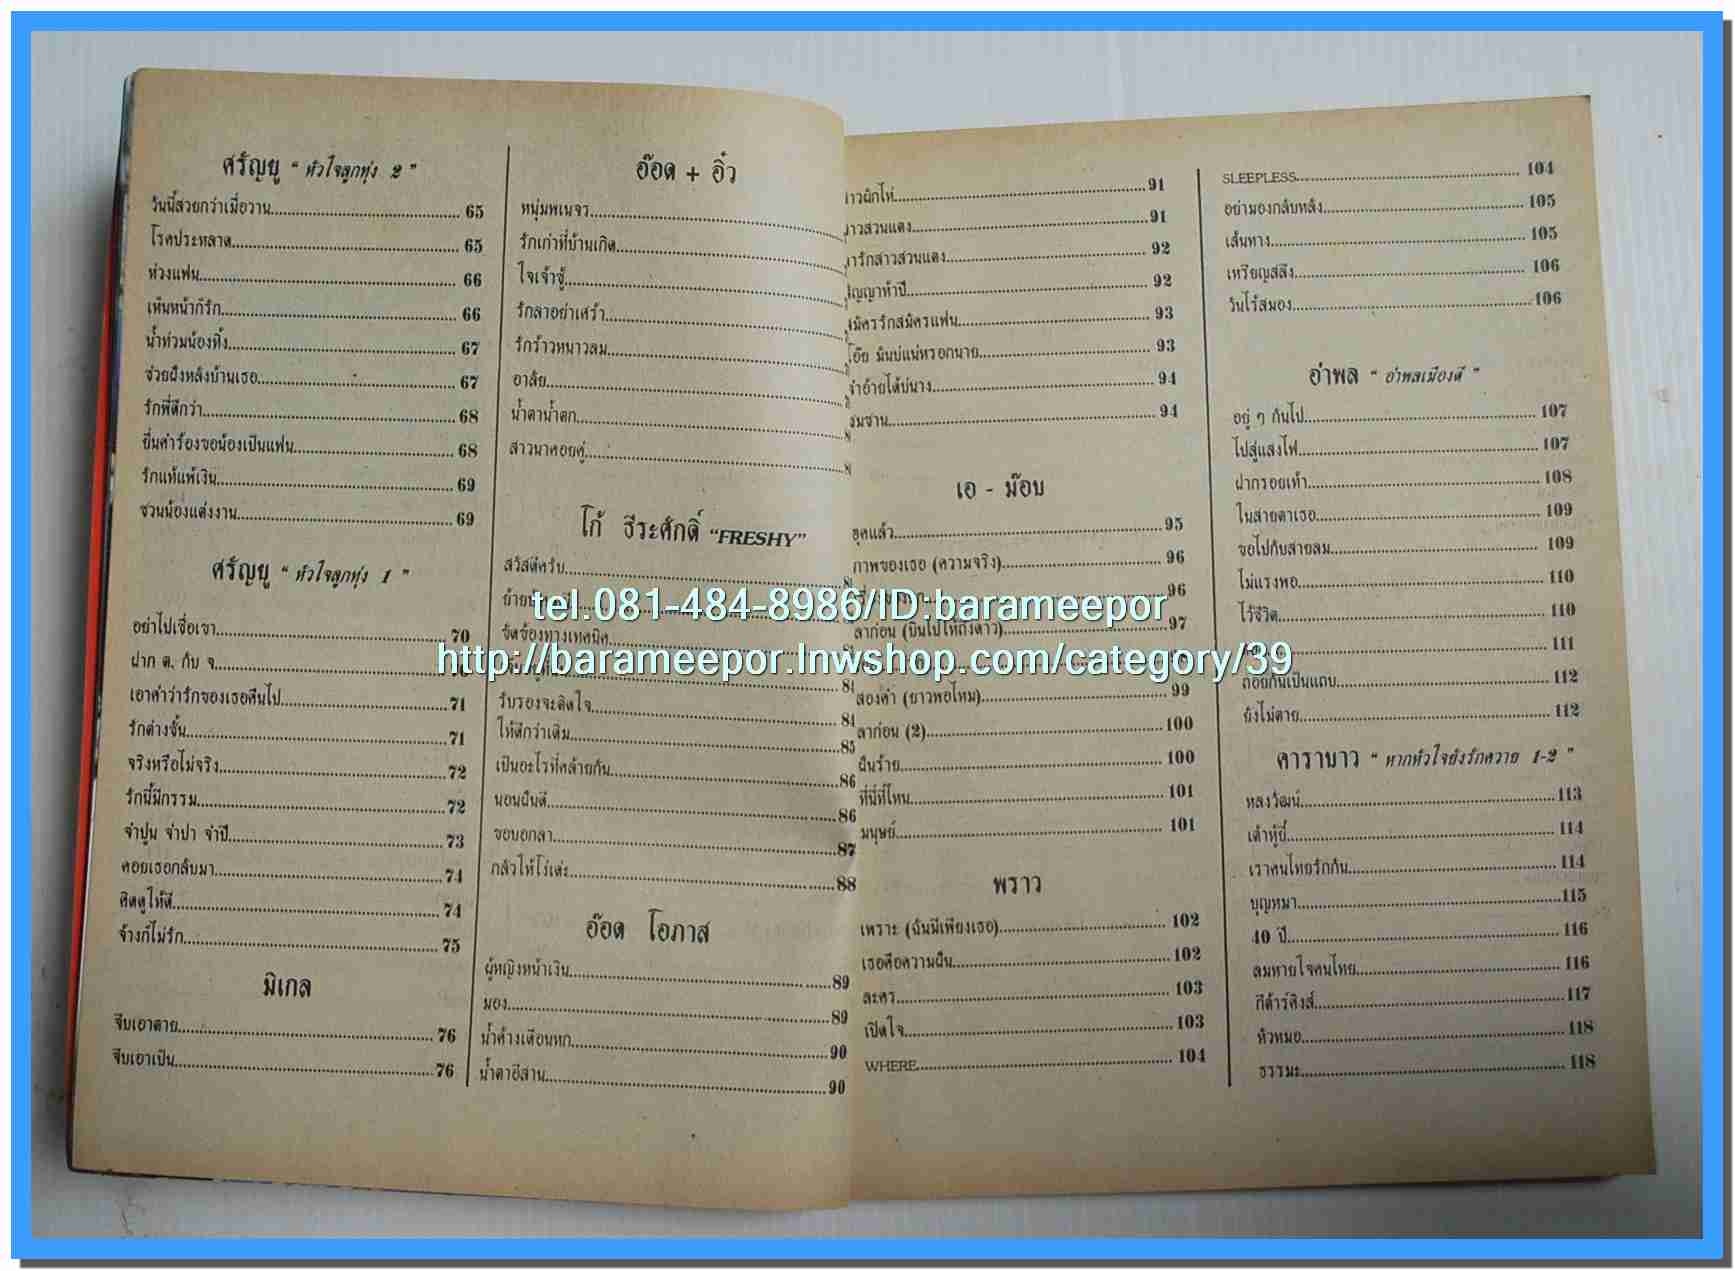 ศรัญยู " หัวใจลูกทุ่ง 2 "
วันนี้สวยกว่าเมื่อวาน 65
โรคประหลาด 65
ห่วงแฟน 66
เห็นหน้าก็รัก 66
น้ำท่วมน้องทิ้ง 67
ช่วยฝังหลังบ้านเธอ 67
รักพี่ดีกว่า 68
ยื่นคำร้องขอน้องเป็นแฟน 68
รักแท้แพ้เงิน 69
ชวนน้องแต่งงาน 69
ศรัญยู " หัวใจลูกทุ่ง 1 "
อย่าไปเชื่อเขา 70
ฝาก ด. กับ จ.
เอาคำว่ารักของเธอคืนไป 71
รักต่างชั้น 71
จริงหรือไม่จริง 72
รักนี้มีกรรม 72
จำปูน จำปา จำปี 73
คอยเธอกลับมา 74
คิดดูให้ดี 74
จ้างก็ไม่รัก 75
มิเกล
จีบเอาตาย 76
จีบเอาเป็น 76
อ๊อด + อิ๋ว
หนุ่มพเนจร
รักเก่าที่บ้านเกิด
ใจเจ้าชู้
รักลาอย่าเศร้า
รักร้าวหนาวลม
อาลัย
น้ำตาน้ำตก
สาวนาคอยคู่
โก้ ธีระศักดิ์ "FRESHY"
สวัสดีครับ
ขัดข้องทางเทคนิค
รับรองจะติดใจ 84
ให้ดีกว่าเดิม 85
เป็นอะไรที่คล้ายกัน 86
นอนฝันดี 86
ขอบอกลา 87
กลัวไห้โร่เด่ะ 88
อ๊อด โอภาส
ผู้หญิงหน้าเงิน 89
มอง 89
น้ำค้างเดือนหก 90
น้ำตาอีสาน 90
าวผักไห่ 91
าวสวนแตง 91
ารักสาวสวนแตง 92
ัญญาห้าปี 92
มัครรักสมัครแฟน 93
โอ๊ย มันบ่แน่หรอกนาย 93
จำอ้ายได้บ่นาง 94
ซมซาน 94
เอ - ม๊อบ
ภาพของเธอ (ความจริง) 96
96
ลาก่อน (บินไปให้ถึงดาว) 97
สองคำ (ยาวพอไหม) 99
ลาก่อน (2) 100
ฝันร้าย 100
ที่นี่ที่ไหน 101
มนุษย์ 101
พราว
เพราะ (ฉันมีเพียงเธอ) 102
เธอคือความฝัน 102
ละคร 103
เปิดใจ 103
WHERE 104
SLEEPLESS 104
อย่ามองกลับหลัง 105
เส้นทาง 105
เหรียญสลึง 106
วันไร้สมอง 106
อำพล " อำพลเมืองดี "
อยู่ ๆ กันไป 107
ไปสู่แสงไฟ 107
ฝากรอยเท้า 108
ในสายตาเธอ 109
ขอไปกับสายลม 109
ไม่แรงพอ 110
ไว้ชีวิต 110
111
ถอยกันเป็นแถบ 112
ยังไม่ตาย 112
คาราบาว " หากหัวใจยังรักควาย 1-2 "
หลงวัฒน์ 113
เต้าหู้ยี้ 114
เราคนไทยรักกัน 114
บุญหมา 115
40 ปี 116
ลมหายใจคนไทย 116
กีต้าร์คิงส์ 117
หัวหมอ 118
ธรรมะ 118
tel.081-484-8986/ID.barameepor
http://barameepor.lnwshop.com/category/39